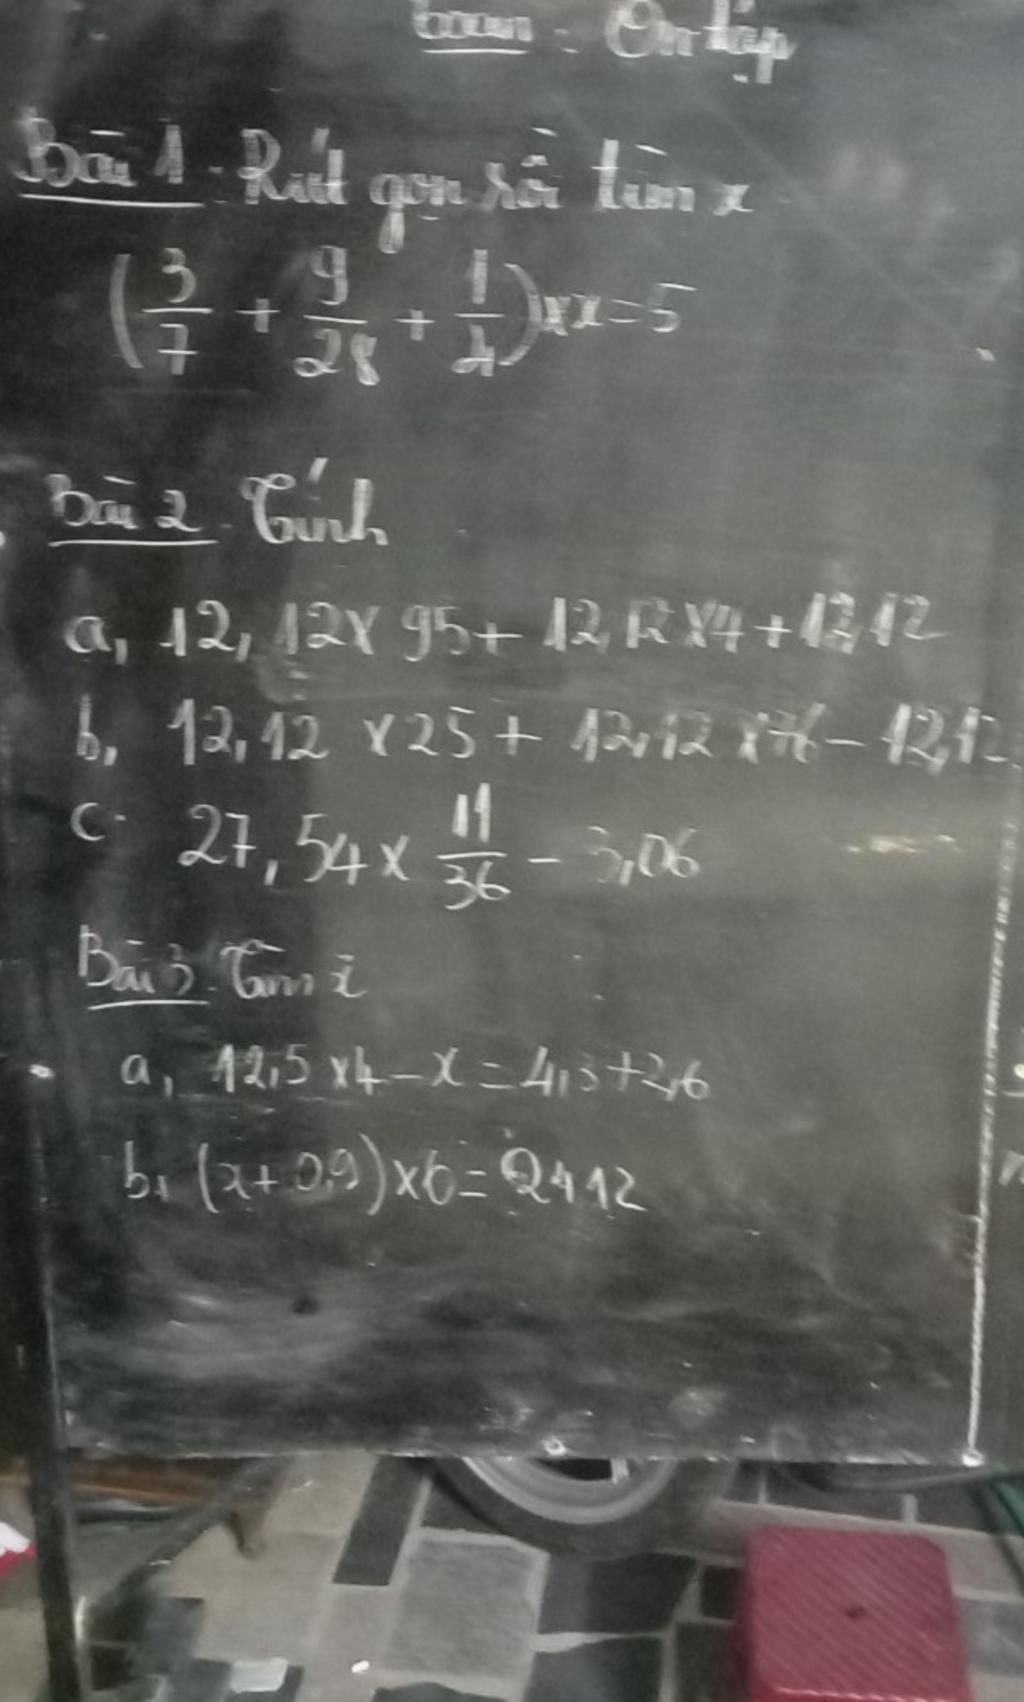 Toán: Ôn tập
Bài 1. Rút gọn rồi tìm x
(3/7 + 9/28 + 1/4) x x = 5
Bài 2. Tính
a, 12,12 x 95 + 12,12 x 4 + 12,12
b, 12,12 x 25 + 12,12 x 76 - 12,12
c. 27,54 x 11/36 - 3,06
Bài 3. Tìm x
a, 12,5 x 4 - x = 4,3 + 2,6
b, (x + 0,9) x 6 = 24,12